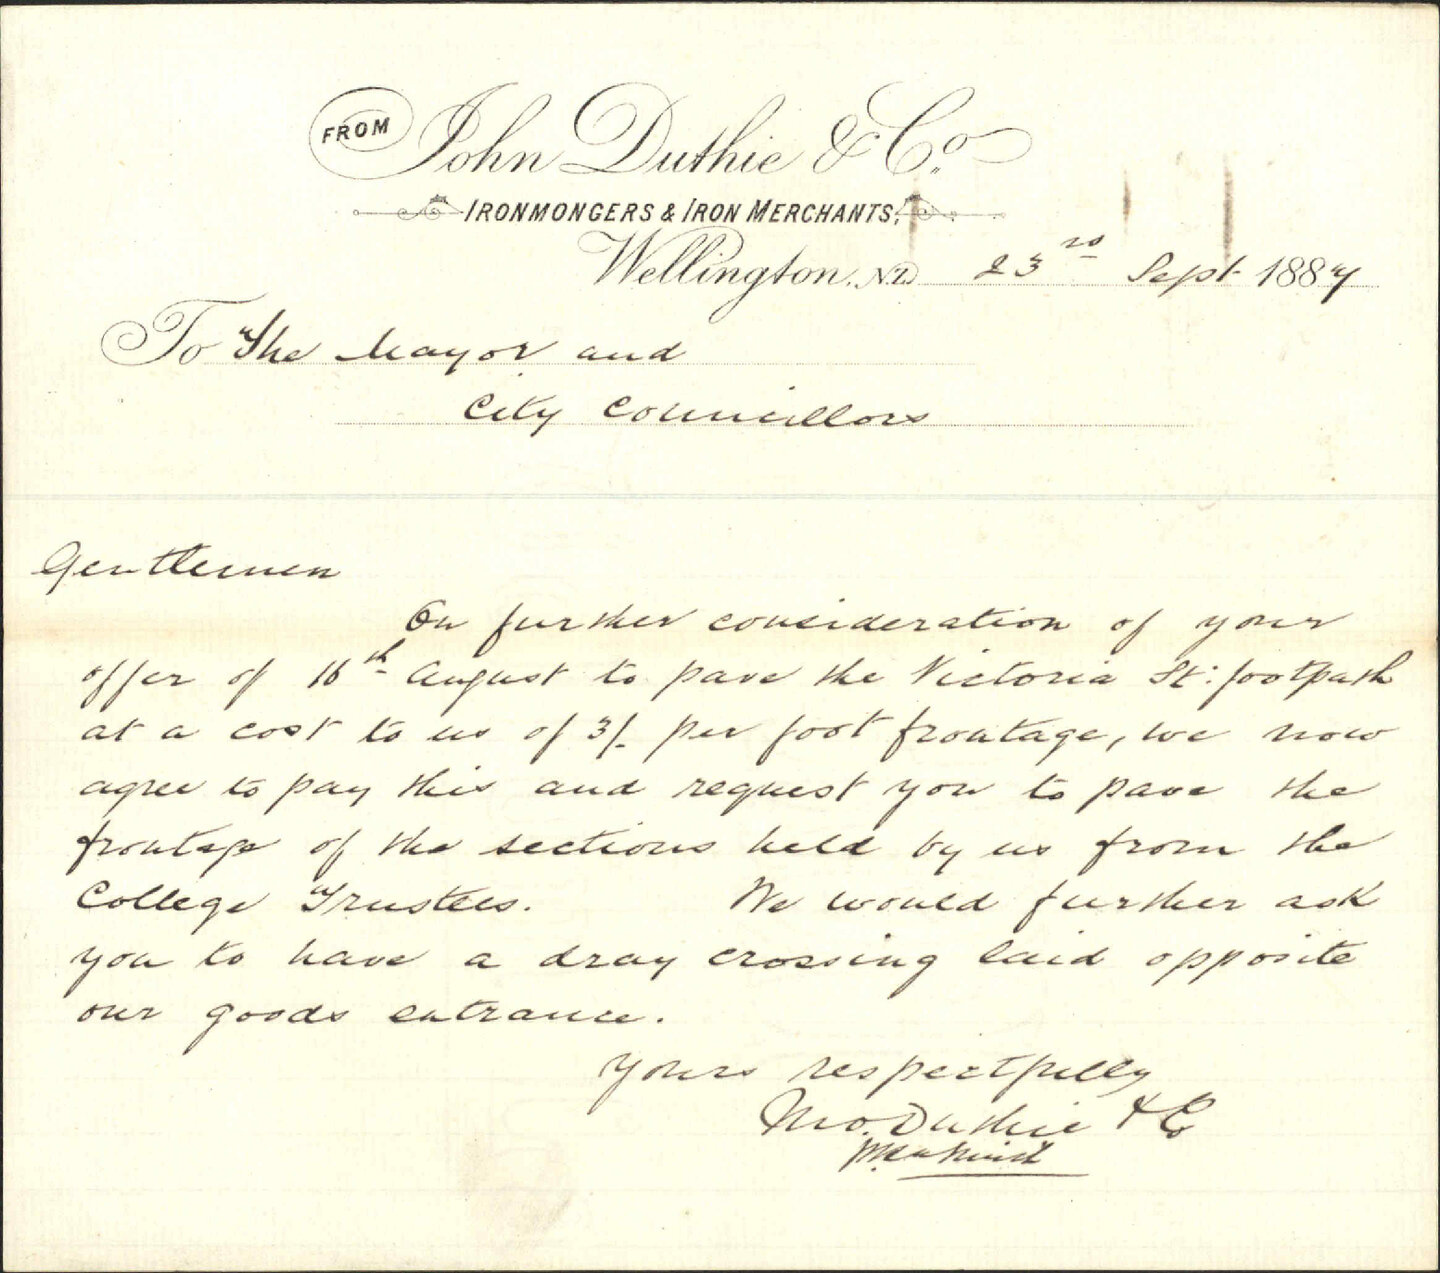 FROM John Duthie & Co.
IRONMONGERS & IRON MERCHANTS,
Wellington, N.Z. 23rd Sept 1887
To The Mayor and
City Councillors
Gentlemen
On further consideration of your
offer of 16th August to pave the Victoria St: footpath
at a cost to us of 3/- per foot frontage, we now
agree to pay this and request you to pave the
frontage of the sections held by us from the
College Trustees. We would further ask
you to have a dray crossing laid opposite
our goods entrance.
Yours respectfully
Jno. Duthie & Co